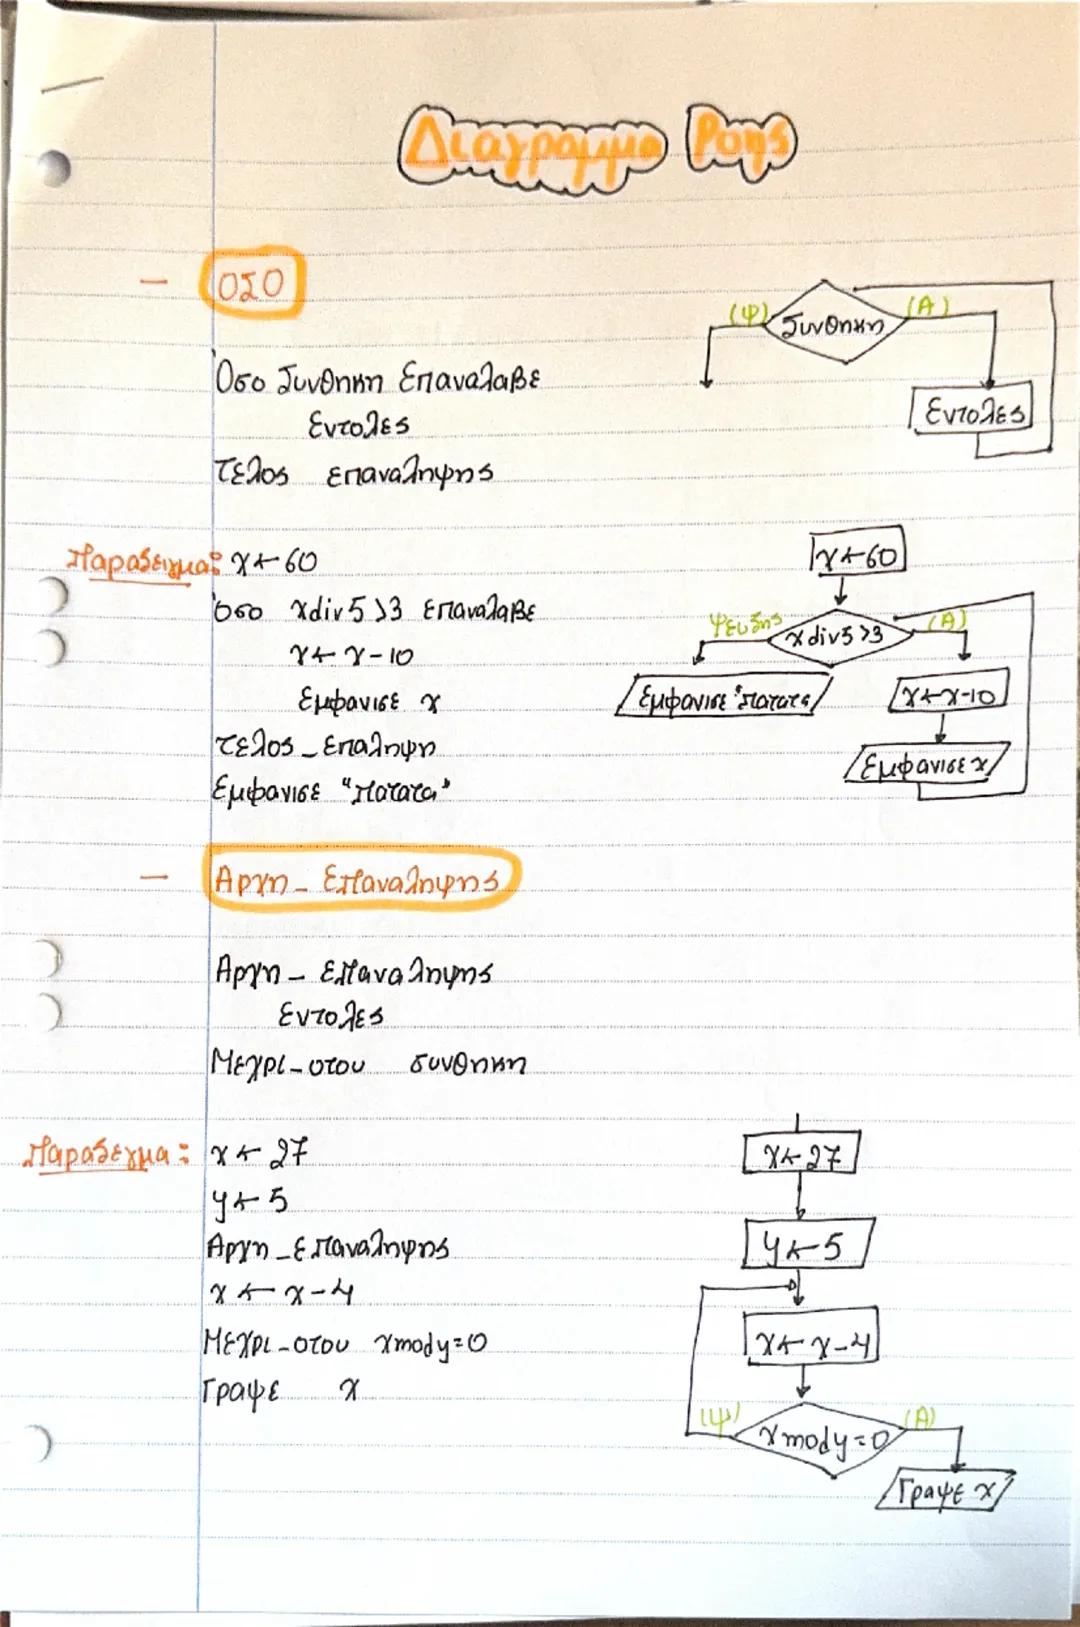 Διαγραμμα Ροης
- ΟΣΟ
Οσο Συνθηκη Επαναλαβε
Εντολες
Τελος επαναληψης
(Ψ) Συνθηκη (Α)
Εντολες
Παραδειγμα: χ ← 60
Όσο χdiv5 >3 επαναλαβε
χ ← χ-10
Εμφανισε χ
Τελος_Επαληψη
Εμφανισε "Πατατα"
χ←60
Ψευδης χdiv5 >3 (Α)
Εμφανισε "Πατατα χ←χ-10
Εμφανισε χ
- Αρχη_Επαναληψης
Αρχη_Επαναληψης
Εντολες
Μεχρι_οτου συνθηκη
Παραδεγμα: χ ← 27
y ← 5
Αρχη_Επαναληψης
χ ← χ-4
Μεχρι_οτου χmody=0
Γραψε χ
χ←27
y←5
χ← χ-4
(Ψ) χmody=0 (Α)
Γραψε χ